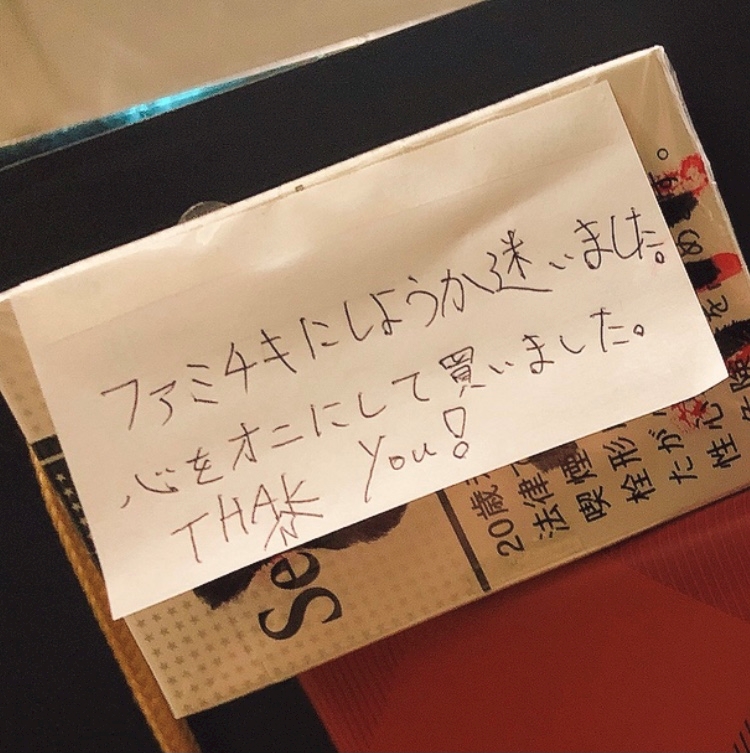 ファミチキにしようか迷いました。
心をオニにして買いました。
THANK you!
Se
20歳
法律で
喫煙
栓形
たが
性心